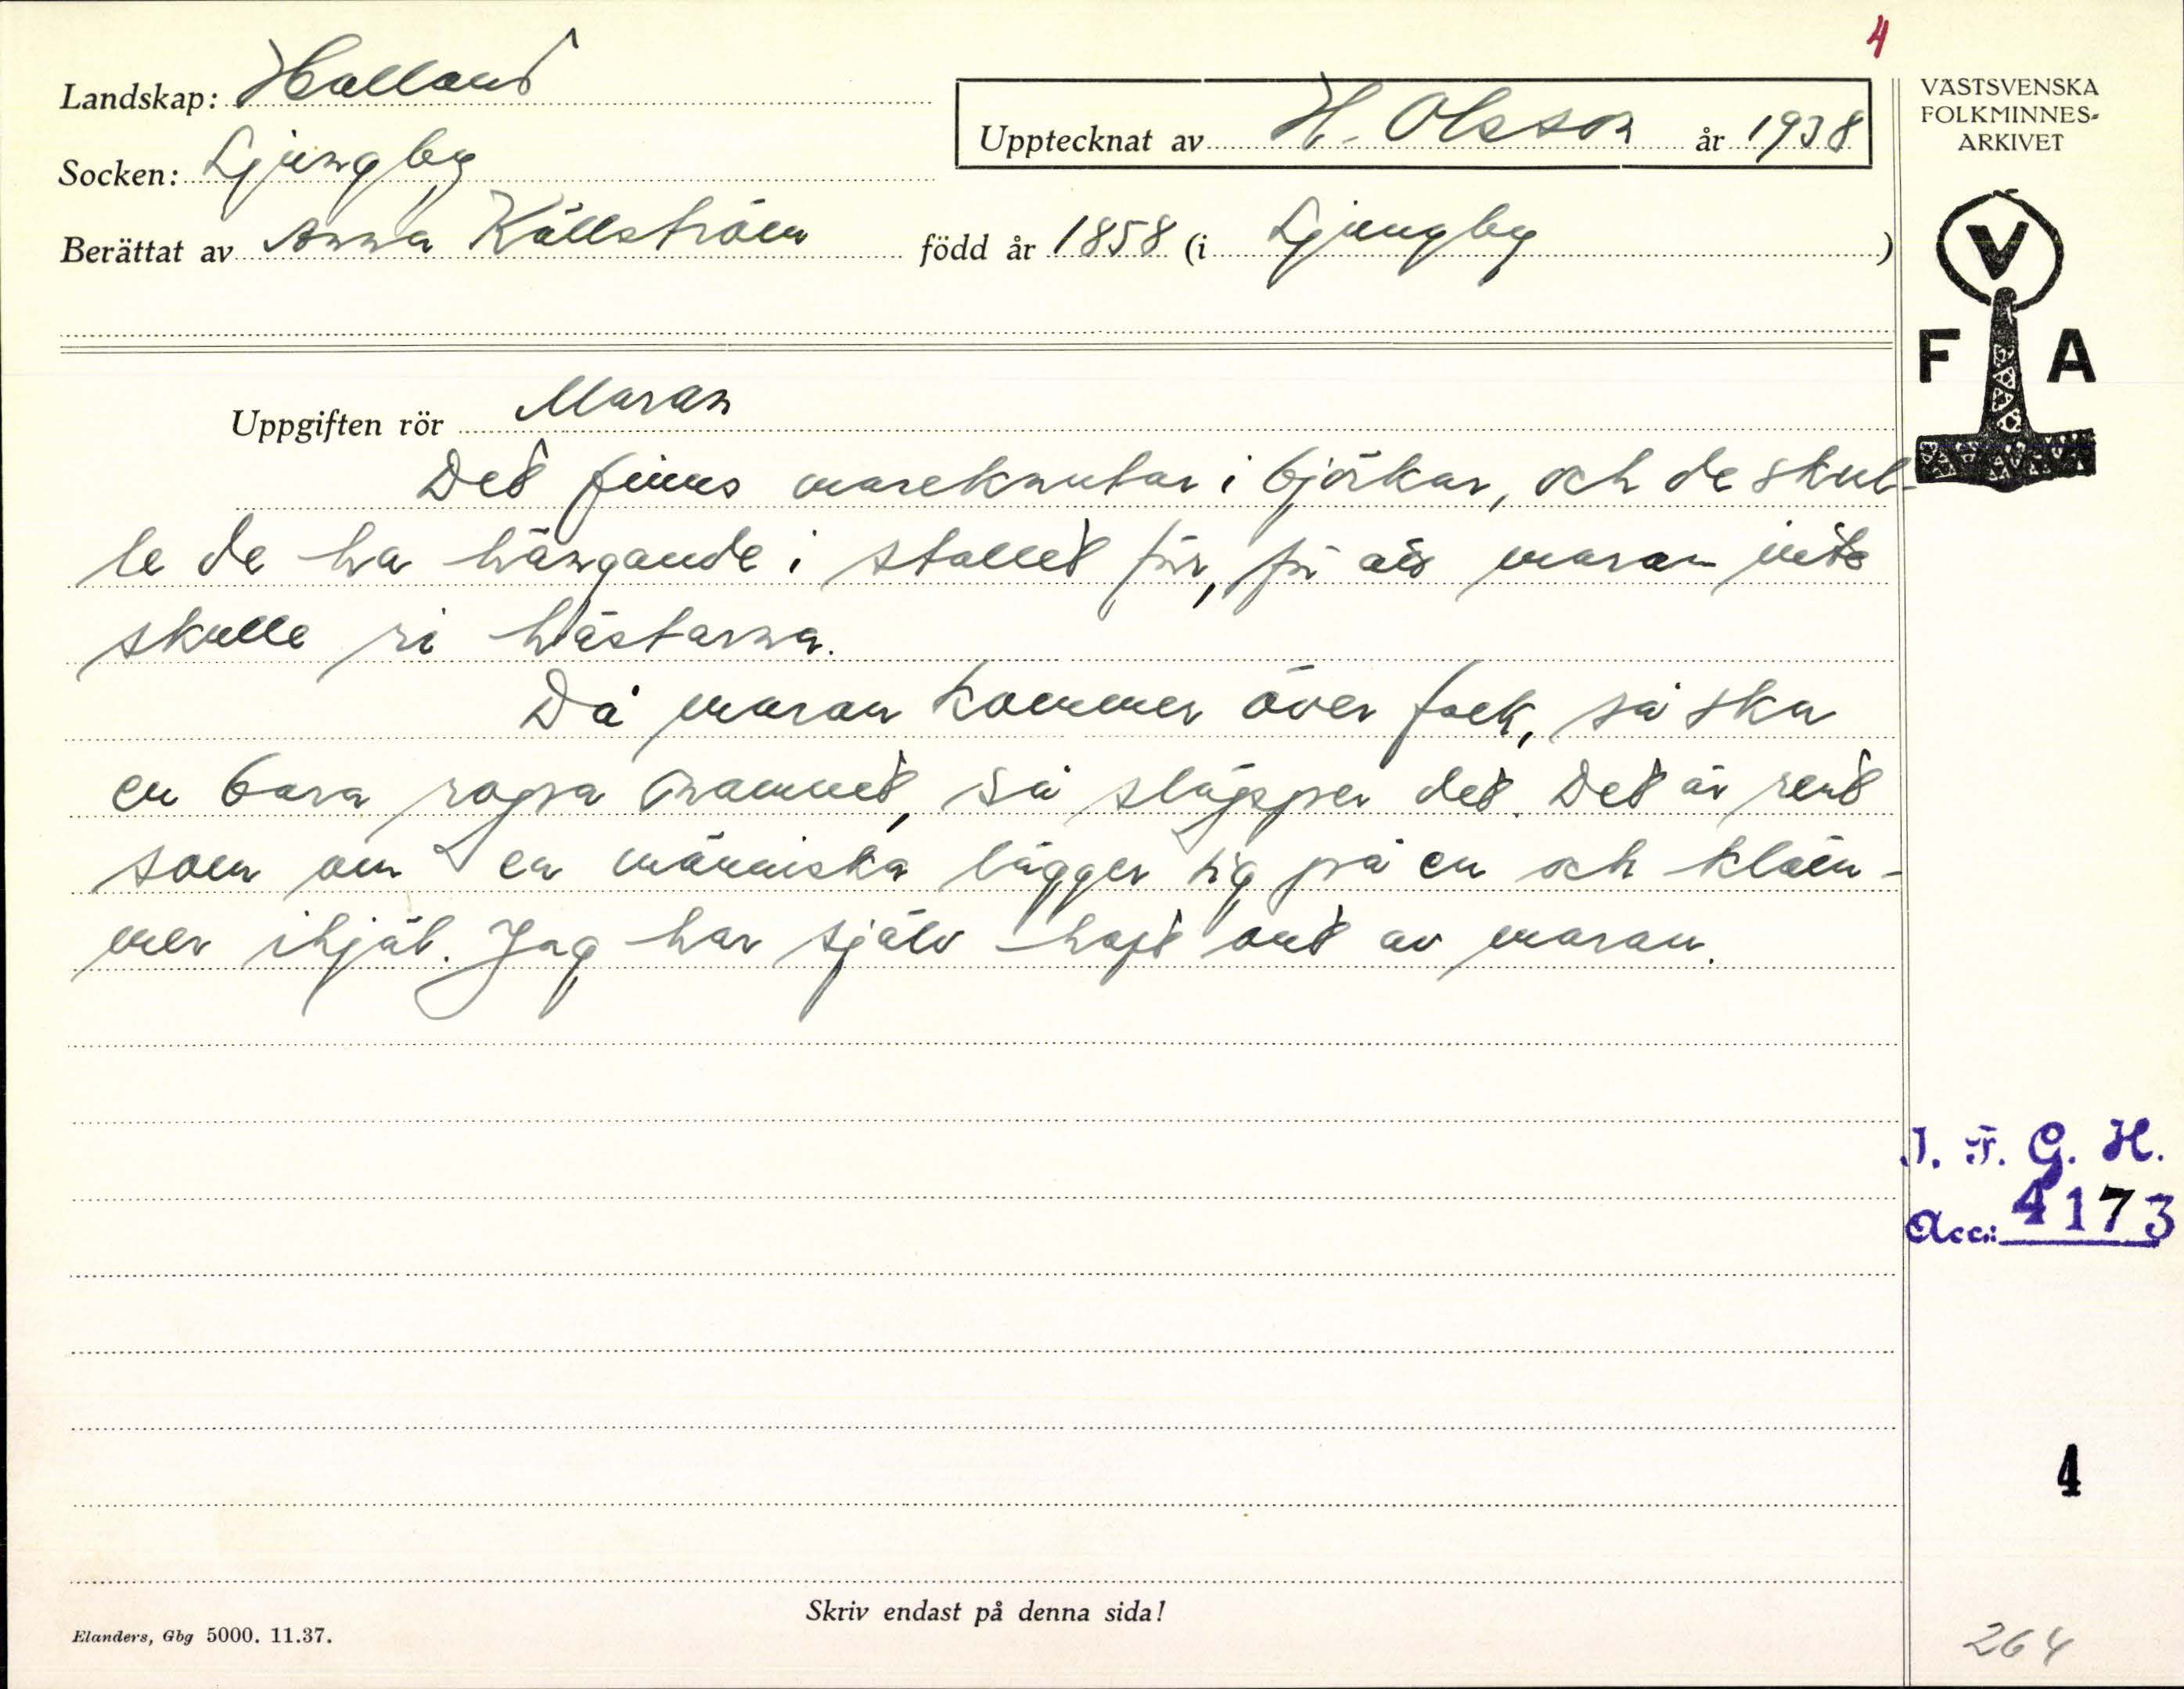 4
Landskap: Halland
Upptecknat av H. Olsson år 1938
VÄSTSVENSKA
FOLKMINNES-
ARKIVET
Socken: Ljungby
Berättat av Anna Källström född år 1858 (i Ljungby )
V
F A
Uppgiften rör Maran
Det finns mareknutar i björkar, och de skul-
le de ha hängande i stallet för, för att maran inte
skulle ri hästarna.
Då maran kommer över folk, så ska
en bara ropa namnet, så släpper det. Det är rent
som om en människa lägger sig på en och kläm-
mer ihjäl. Jag har själv haft ont av maran.
I. F. G. H.
Acc: 4173
4
Skriv endast på denna sida!
Elanders, Gbg 5000. 11.37.
264